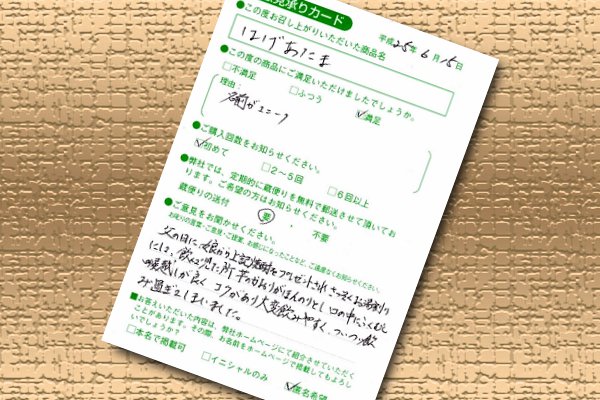 意見承りカード
平成25年6月15日
●この度お召し上がりいただいた商品名
はげあたま
●この度の商品にご満足いただけましたでしょうか。
□不満足 □ふつう ☑満足
理由：
名前がユニーク
●ご購入回数をお知らせください。
☑初めて □2～5回 □6回以上
●弊社では、定期的に蔵便りを無料で郵送させて頂いてお
ります。ご希望の方はお知らせください。
蔵便りの送付 要 ・ 不要
●ご意見をお聞かせください。
お叱りの言葉・ご意見・ご提案、お感じになったことなど、ご遠慮なくお知らせください。
父の日に、娘から上記焼酎をプレゼントされ さっそくお湯割り
にし、飲んで見た所 芋のかおりがほんのりとし 口の中にふくむと
感じが良く コクがあり大変飲みやすく、ついつい飲
み過ぎてしまいました。
■お答えいただいた内容は、弊社ホームページにて紹介させていただく
ことがあります。その際、お名前をホームページで掲載してもよろし
いでしょうか？
□本名で掲載可 □イニシャルのみ ☑匿名希望